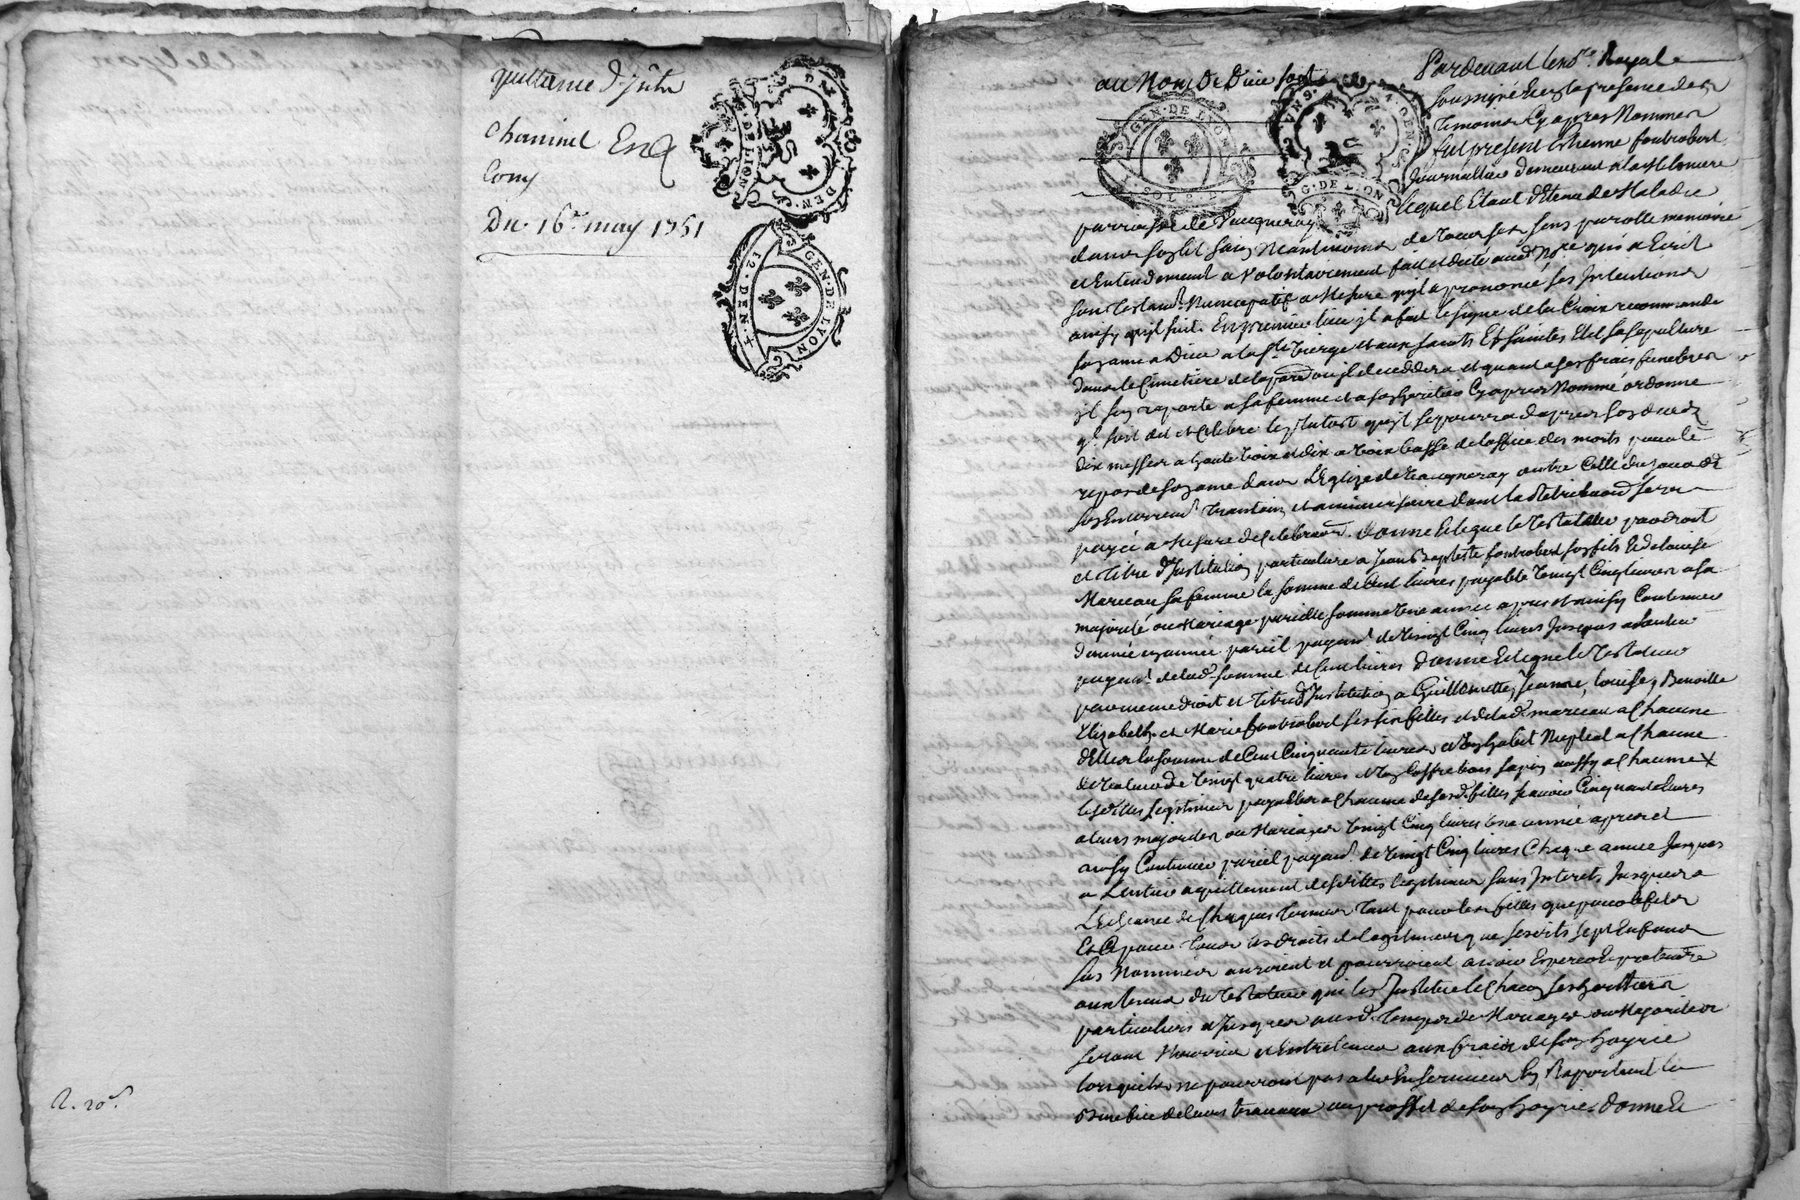 quittance
Chaninel
Du 16e may 1751
GEN. DE LYON
12. DEN.
R. 20s.
au Nom De Dieu soit
Pardevant le no.re Royal
soussigné En la presence des
temoins Cy apres Nommes
fut present Estienne fontrobert
journallier demeurant a la
GEN. DE LYON
SOL
G. DE LYON
parroisse de Vaugneray lequel Etant detenu de Maladie
dans son lit sans Neantmoins de tous ses sens parolle memoire
et Entendement a volontairement fait et dicté aud. No.re qui a Ecrit
son testam.t Nuncupatif a Mesure qu'il a prononcé ses Intentions
ainsy qu'il suit. En premier lieu il a fait le signe de la Croix recommandé
son ame a Dieu a la Ste Vierge et aux saints Et saintes Elit sa sepulture
dans le Cimetiere de la parr.e ou il decedera et quant a ses frais funebres
il s'en raporte a sa femme et a son heritier Cy apres Nommé ordonne
q.l soit dit et Celebré le plutost qu'il se pourra d'apres son deced
dix messes a haute voix et dix a voix basse de l'office des morts pour le
repos de son ame dans L'Eglize de Vaugneray outre Celle du jour de
son Enterrem.t quarantain et anniversaire dont la Retribuon sera
payée a Mesure de Celebraon. donne Et legue le Testateur par droit
et titre d'Institution particuliere a Jean Baptiste fontrobert son fils Et de louise
Mareau sa femme la somme de Cent livres payable vingt Cinq livres a sa
majorité ou Mariage pareille somme Une année apres et ainsy Continuer
d'année en année pareil payem.t de vingt Cinq livres jusques a Entier
payem.t de lad. somme de Cent livres donne Et legue le Testateur
par meme droit et titre d'Institution a Guillemette, Jeanne, louise, Benoitte
Elizabeth et Marie fontrobert ses six filles et de lad. mareau a Chacune
d'Elles la somme de Cent Cinquante livres et Un habit Nuptial a Chacune
de valeur de vingt quatre livres et Un Coffre bois sapin aussy a Chacune
lesd.ittes legitimes payables a Chacune desd. filles scavoir Cinquante livres
a leurs majorites ou Mariages vingt Cinq livres Une année apres et
ainsy Continuer pareil payem.t de vingt Cinq livres Chaque année jusques
a L'entier aquittement desdittes legitimes sans Interets jusques a
L'Echeance de Chaques termes tant pour les filles que pour le fils
Et Ce pour tous les droits de legitimes que sesdits sept Enfans
sus Nommés auroient et pourroient avoir Esperer Et pretendre
aux biens du Testateur qui les Institue le Chacun ses heritiers
particuliers Et jusques aud. temps de Mariages ou Majorites
seront Nourris et Entretenus aux frais de son hoyrie
lorsqu'ils ne pourront pas aller En service En Raportant le
Benefice de leurs travaux au proffit de son hoyrie. donne Et